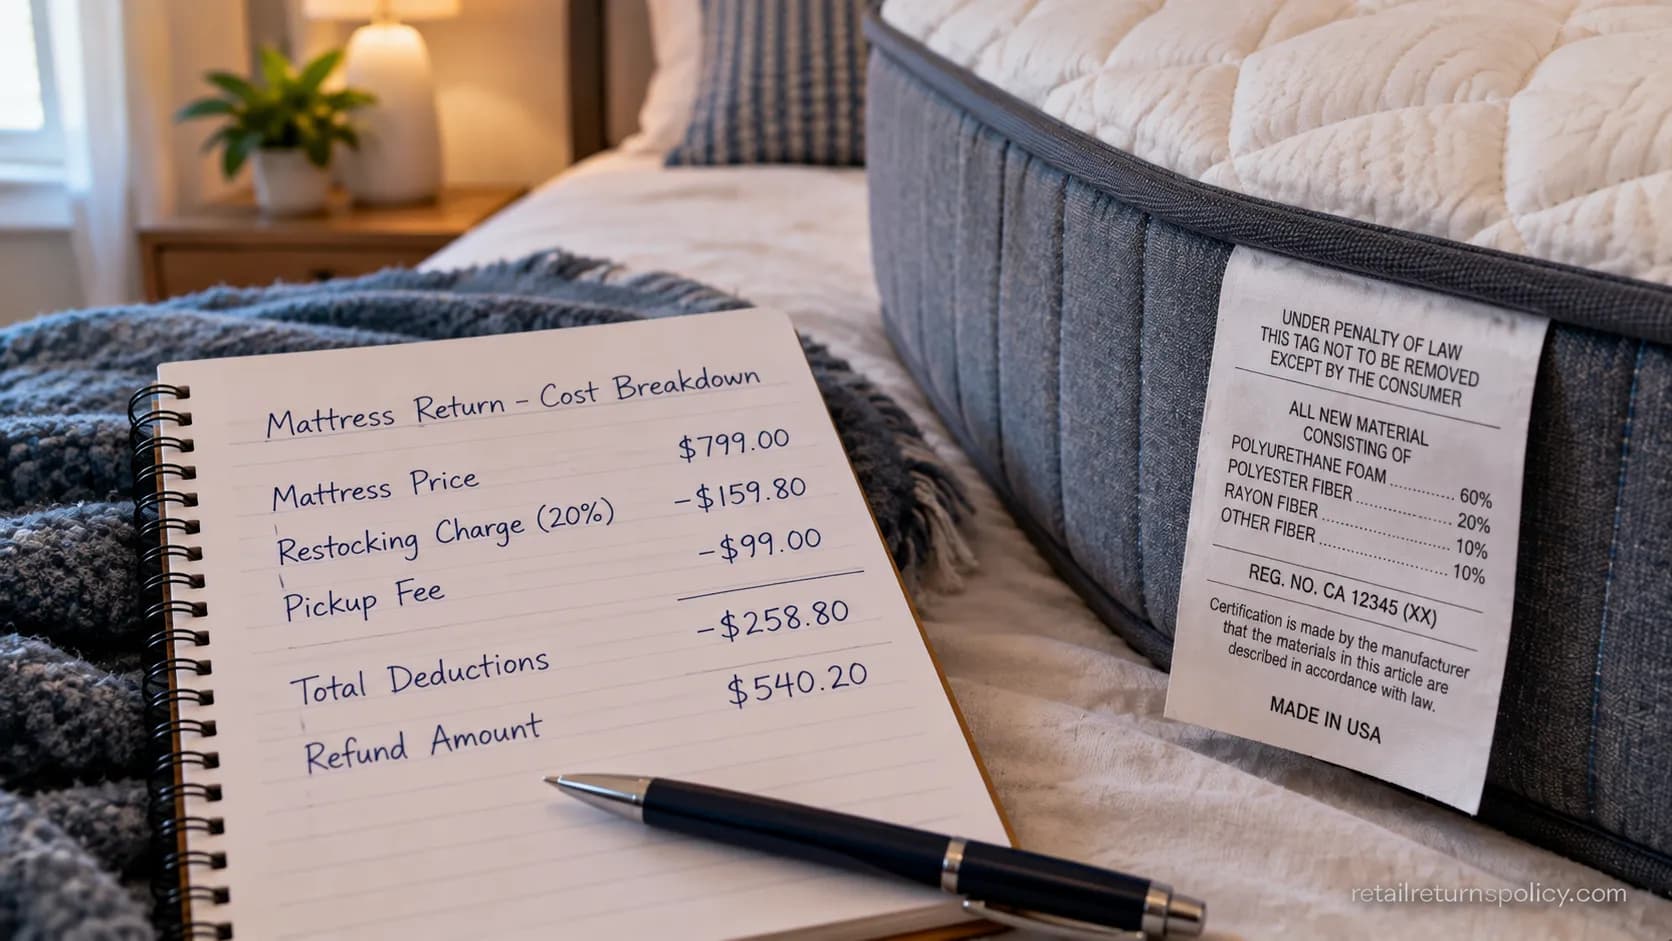 Mattress Return – Cost Breakdown
Mattress Price $799.00
Restocking Charge (20%) –$159.80
Pickup Fee –$99.00
Total Deductions –$258.80
Refund Amount $540.20
UNDER PENALTY OF LAW
THIS TAG NOT TO BE REMOVED
EXCEPT BY THE CONSUMER
ALL NEW MATERIAL
CONSISTING OF
POLYURETHANE FOAM ............ 60%
POLYESTER FIBER .................. 20%
RAYON FIBER ........................ 10%
OTHER FIBER ........................ 10%
REG. NO. CA 12345 (XX)
Certification is made by the manufacturer
that the materials in this article are
described in accordance with law.
MADE IN USA
retailreturnspolicy.com